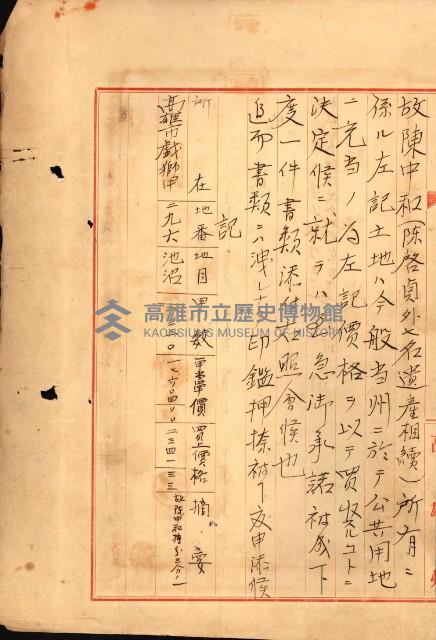 故陳中和(陳啓貞外七名遺產相續)所有ニ
係ル左記土地ハ今般当州ニ於テ公共用地
ニ充当ノ為左記價格ヲ以テ買收スルコトニ
決定候ニ就テハ至急御承諾相成
度一件書類添付及照會候也
追而書類ニハ洩レナク印鑑押捺相
記
所在 地番 地目 甲數 買上價格 摘要
高雄市戲獅甲 二九六 池沼 二三四一三三 故陳中和持分三分ノ一
高雄市立歷史博物館
KAOHSIUNG MUSEUM OF HISTORY